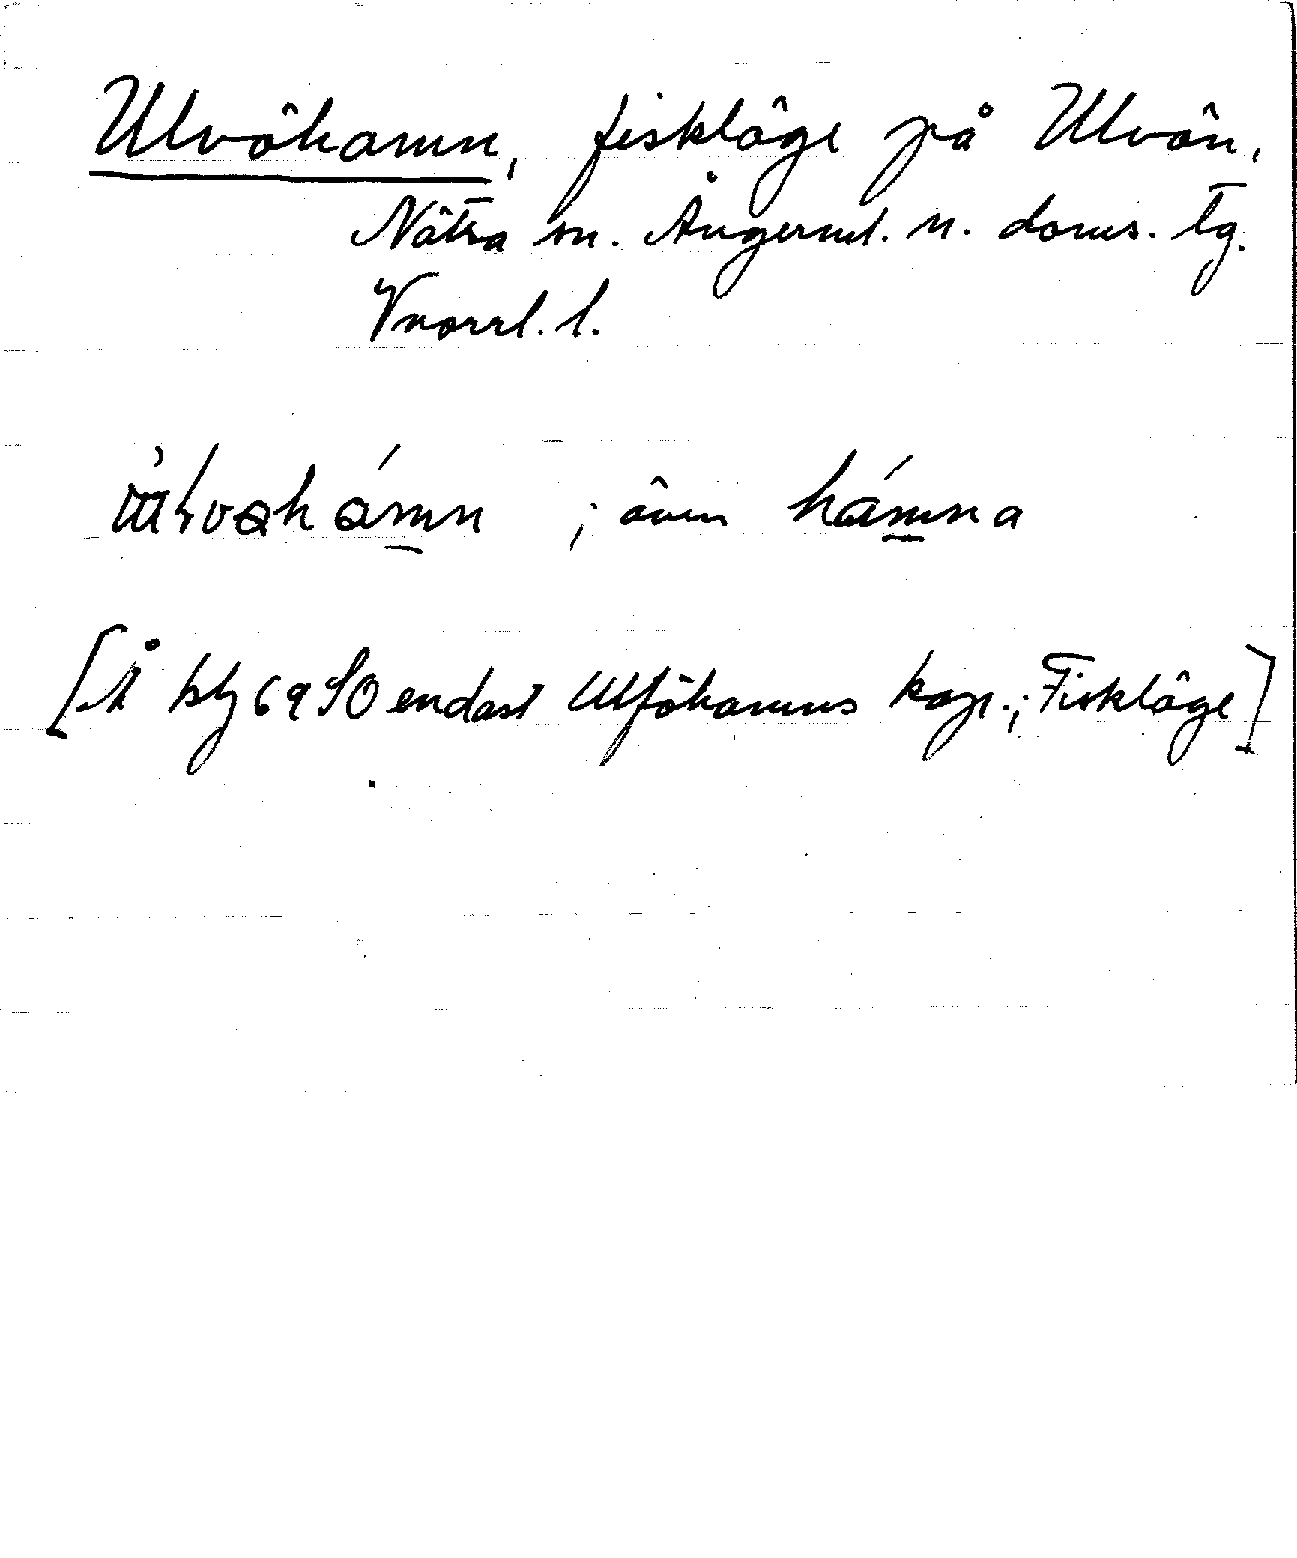 Ulvöhamn, fiskläge på Ulvön,
Nätra sn. Ångerml. n. doms. tg.
Vnorrl. l.
; även hámna
[Å bl 69 SO endast Ulföhamns kap.; Fiskläge]